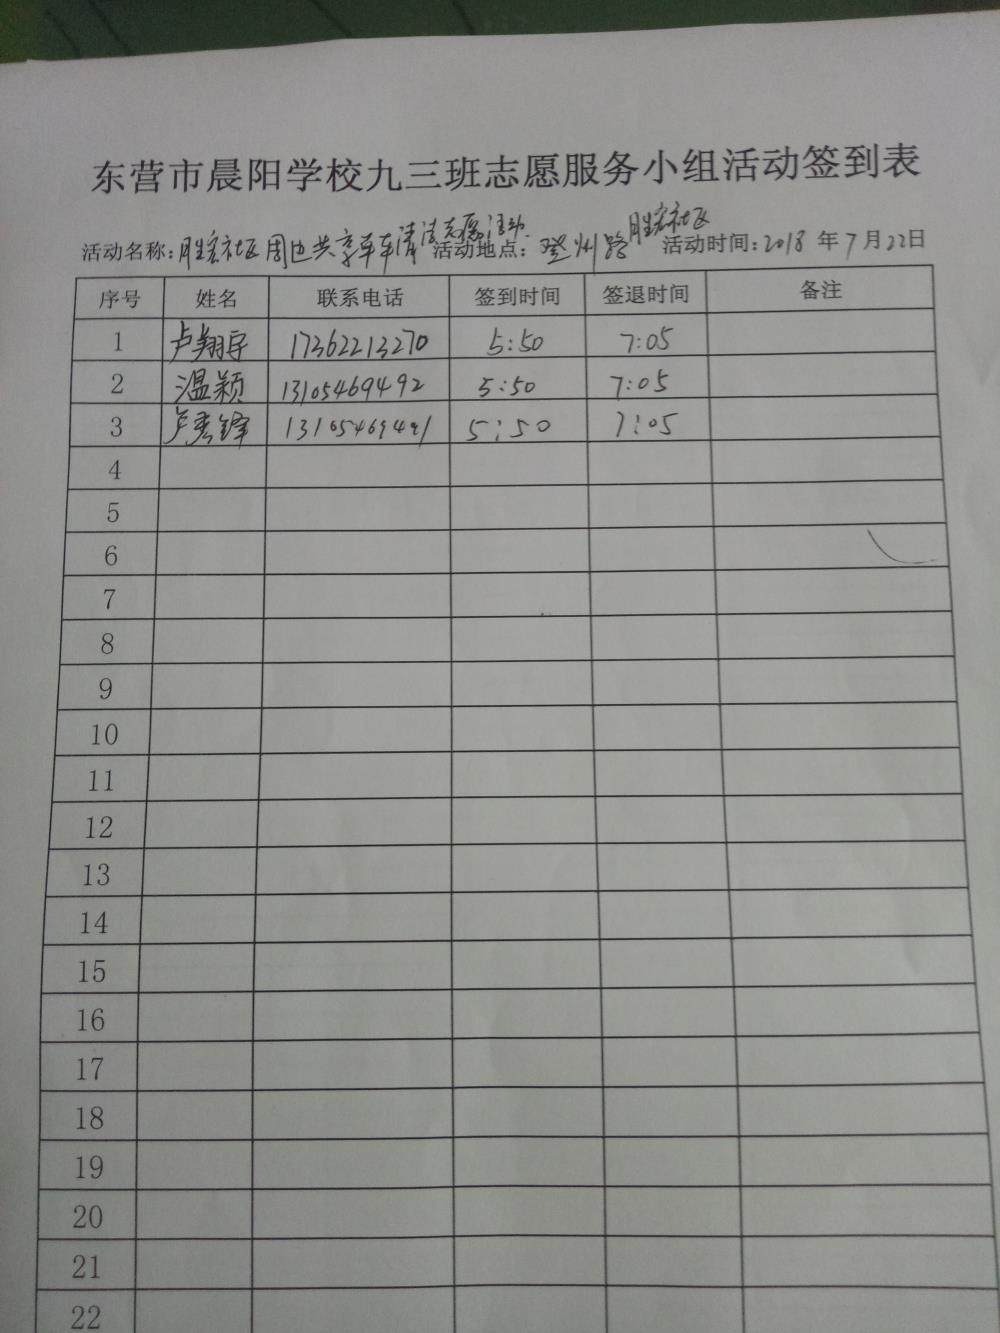 东营市晨阳学校九三班志愿服务小组活动签到表
活动名称:胜宏社区周边共享单车清洁志愿活动 活动地点:登州路胜宏社区 活动时间:2018年7月22日
序号 姓名 联系电话 签到时间 签退时间 备注
1 卢翔宇 17362213270 5:50 7:05
2 温颖 13105469492 5:50 7:05
3 卢秀锋 13105469491 5:50 7:05
4
5
6
7
8
9
10
11
12
13
14
15
16
17
18
19
20
21
22